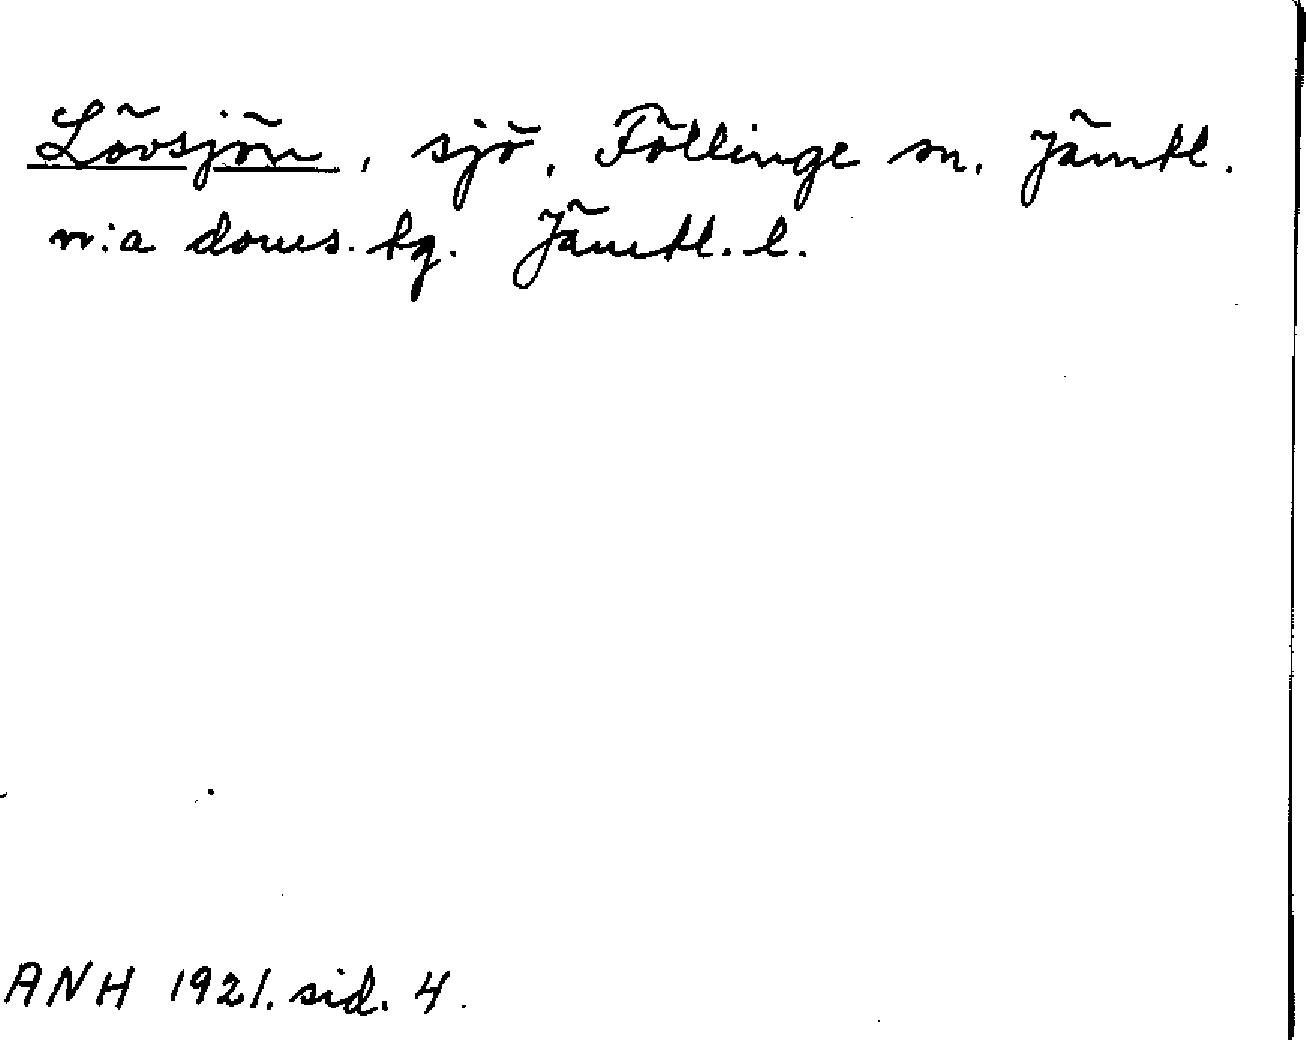 Lövsjön, sjö, Föllinge sn. Jämtl.
n:a doms. hg. Jämtl. l.
ANH 1921. sid. 4.